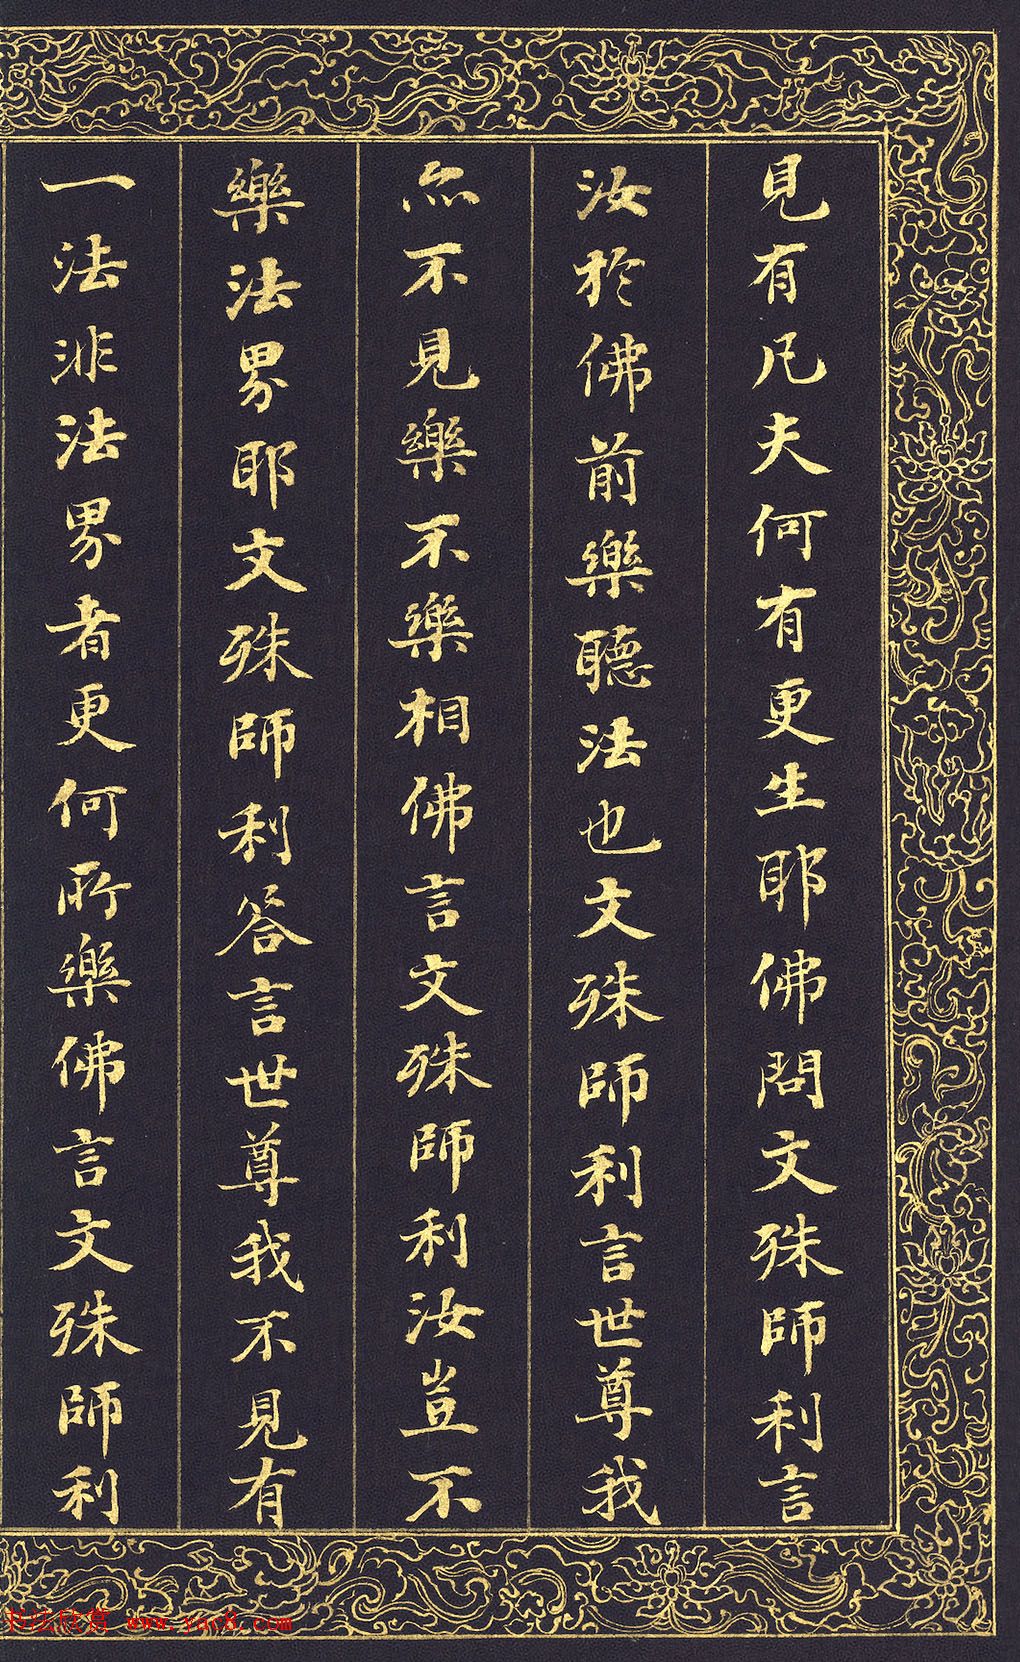 見有凡夫何有更生耶佛問文殊師利言
汝於佛前樂聽法也文殊師利言世尊我
亦不見樂不樂相佛言文殊師利汝豈不
樂法界耶文殊師利答言世尊我不見有
一法非法界者更何所樂佛言文殊師利
书法欣赏 www.yac8.com